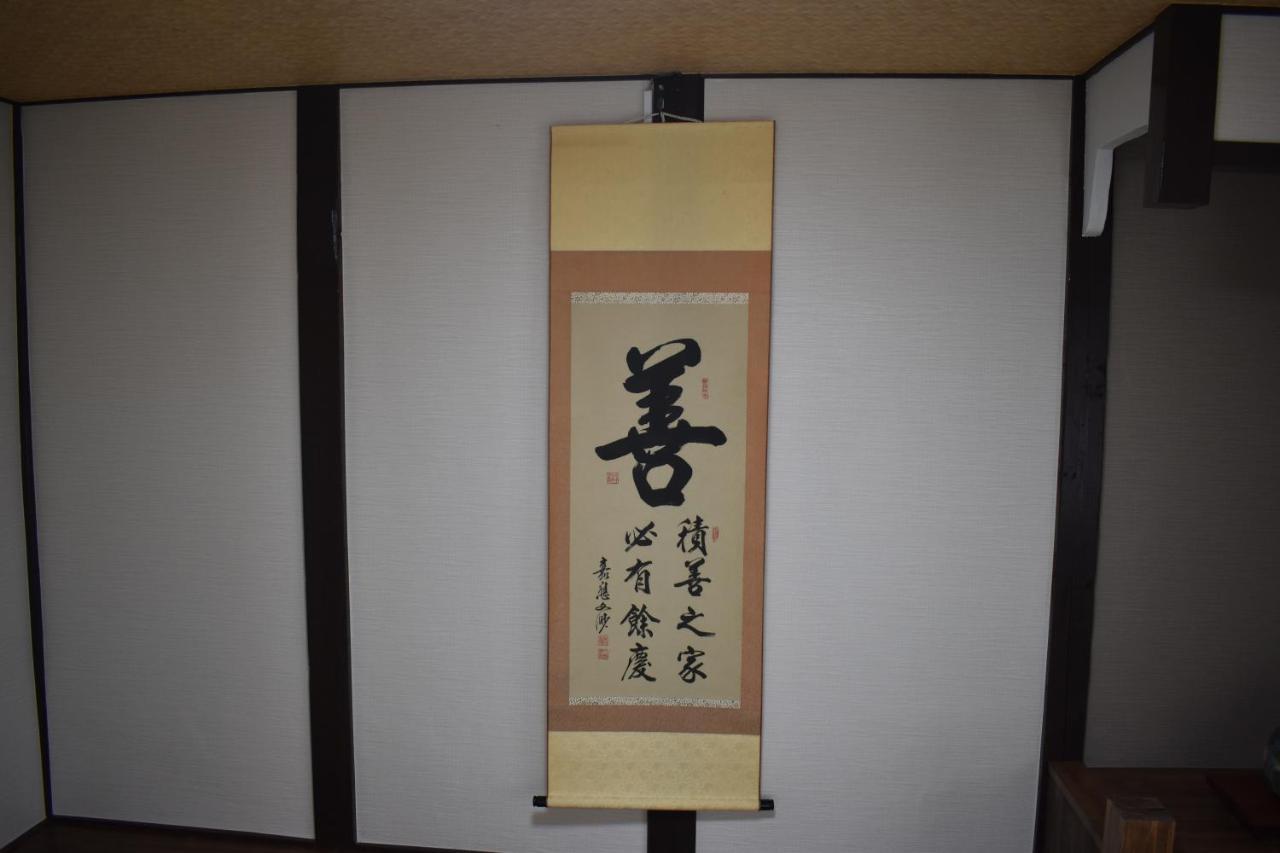 善
積善之家
必有餘慶